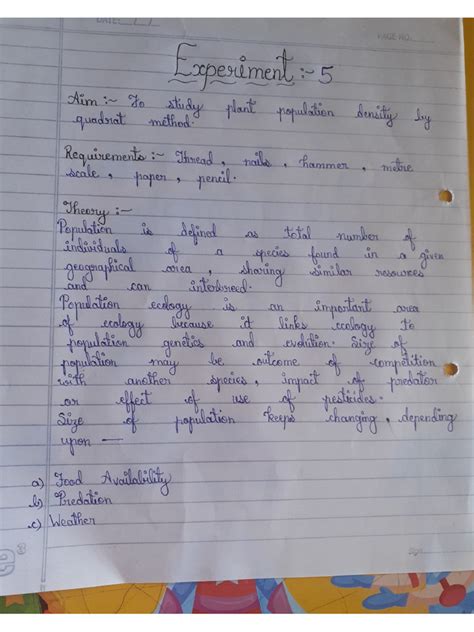 DATE: / /
PAGE NO.
Experiment :- 5
Aim :- To study plant population density by
quadrat method.
Requirements :- Thread, nails, hammer, metre
scale, paper, pencil.
Theory :-
Population is defined as total number of
individuals of a species found in a given
geographical area, sharing similar resources
and can interbreed.
Population ecology is an important area
of ecology because it links ecology to
population genetics and evolution. Size of
population may be outcome of competition
with another species, impact of predator
or effect of use of pesticides.
Size of population keeps changing, depending
upon —
a) Food Availability
b) Predation
c) Weather